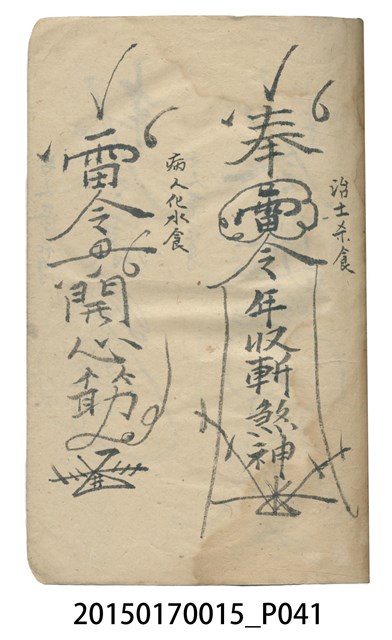 治土杀食
奉雷令年收斬煞神
病人化水食
雷令
開心筋
20150170015_P041